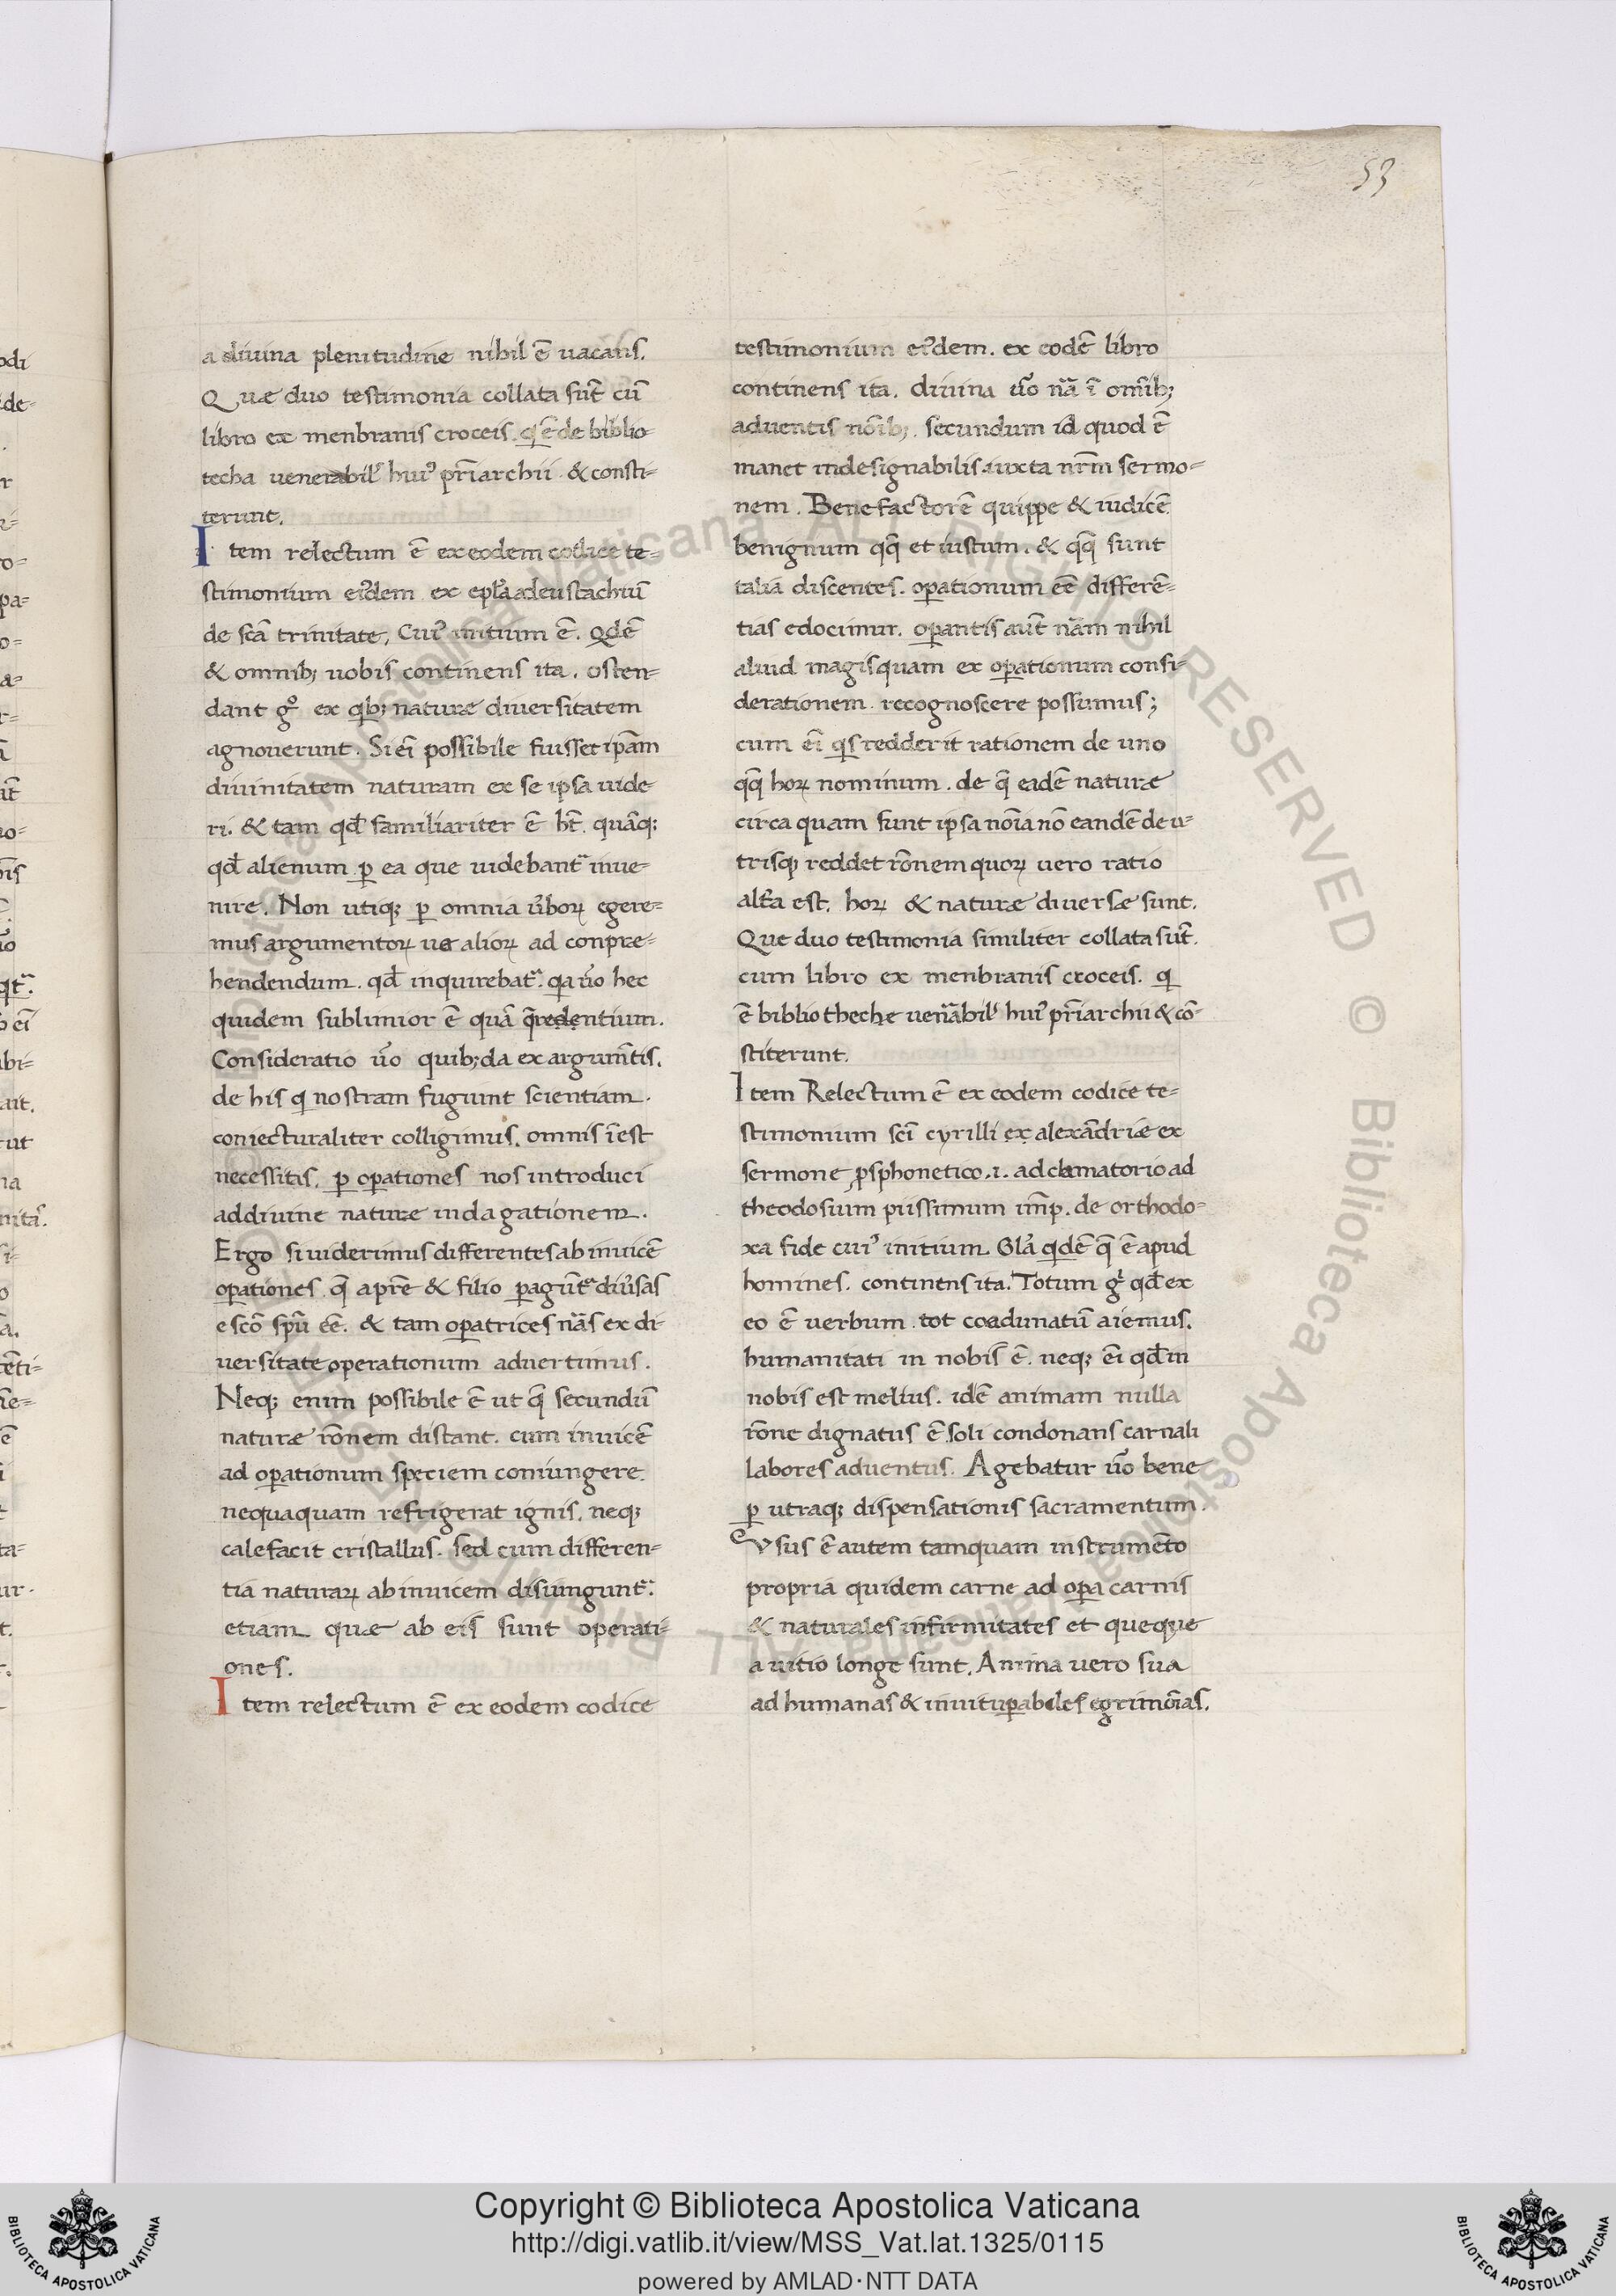 53
a diuina plenitudine nihil ē uacans.
Quæ duo testimonia collata sūt cū
libro ex menbranis croceis. q̄ ē de biblio
techa uenerabilˢ huiꝰ pr̄iarchii & consti-
terunt.
Item relectum ē ex eodem codice te-
stimonium eiꝰdem ex epl̄a ad eustachiū
de sc̄a trinitate, Cuiꝰ initium ē. Qdē
& omnib; uobis continens ita. osten-
dant gº ex qb; naturæ diuersitatem
agnouerunt. Si ei̅ possibile fuisset ipam̄
diuinitatem naturam ex se ipsa uide
ri. & tam qd̄ familiariter ē ht̄. quāq;
qd̄ alienum ꝑ ea que uidebant᷑ inue-
nire. Non utiq; ꝑ omnia ūborꝝ egere-
mus argumentorꝝ ue aliorꝝ ad conpræ-
hendendum. qd̄ inquirebat᷑. qa ūo hec
quidem sublimior ē quā q̄redentium.
Consideratio ūo quib; da ex argum̄tis.
de his q nostram fugiunt scientiam.
coniecturaliter colligimus. omnis ī est
necessitas. ꝑ oꝑationes nos introduci
ad diuine naturæ indagationem.
Ergo si uiderimus differentes ab inuicē
oꝑationes q̄ a pr̄e & filio ꝑagūt᷑ diūsas
e scō spū eē. & tam oꝑatrices nās ex di-
uersitate operationum aduertimus.
Neq; enim possibile ē ut q̄ secundū
naturæ rōnem distant. cum inuicē
ad oꝑationum speciem coniungere.
nequaquam refrigerat ignis. neq;
calefacit cristallus. sed cum differen-
tia naturarꝝ ab inuicem disiungunt᷑.
etiam quæ ab eis sunt operati-
ones.
Item relectum ē ex eodem codice
testimonium eiꝰdem. ex eodē libro
continens ita. diuina ūo nā ī omīb;
aduentis nōīb;. secundum id quod ē
manet indesignabilis. iuxta nr̄m sermo-
nem. Benefactorē quippe & iudicē
benignum qq̄ et iustum. & qq̄ sunt
talia discentes. oꝑationum eē differē-
tias edocimur. oꝑantis aūt nām nihil
aliud magis quam ex oꝑationum consi-
derationem. recognoscere possumus;
cum ei̅ qs redderit rationem de uno
qq̄ horꝝ nominum. de q̄ eadē naturæ
circa quam sunt ipsa nōīa nō eandē de u-
trisq; reddet rōnem quorꝝ uero ratio
alt̄a est. horꝝ & naturæ diuersæ sunt.
Que duo testimonia similiter collata sūt.
cum libro ex menbranis croceis. q
ē bibliotheche uen̄abilˢ huiꝰ pr̄iarchii & cō-
stiterunt.
Item Relectum ē ex eodem codice te-
stimonium sc̄i cyrilli ex alexādriæ ex
sermone ꝓsphonetico .i. adclamatorio ad
theodosium piissimum imp̄. de orthodo-
xa fide cuiꝰ initium. Gla qdē q̄ ē apud
homines. continens ita. Totum gº qd̄ ex
eo ē uerbum tot coadunatū aiemus.
humanitati in nobis ē. neq; ei̅ qd̄ in
nobis est melius. idē animam nulla
rōne dignatus ē. soli condonans carnali
labores aduentus. Agebatur ūo bene
ꝑ utraq; dispensationis sacramentum.
Vsus ē autem tamquam instrumēto
propria quidem carne ad oꝑa carnis
& naturales infirmitates et queque
a uitio longe sunt. Anima uero sua
ad humanas & inuituꝑabiles egrimōias.
BIBLIOTECA APOSTOLICA VATICANA
Copyright © Biblioteca Apostolica Vaticana
http://digi.vatlib.it/view/MSS_Vat.lat.1325/0115
powered by AMLAD·NTT DATA
BIBLIOTECA APOSTOLICA VATICANA